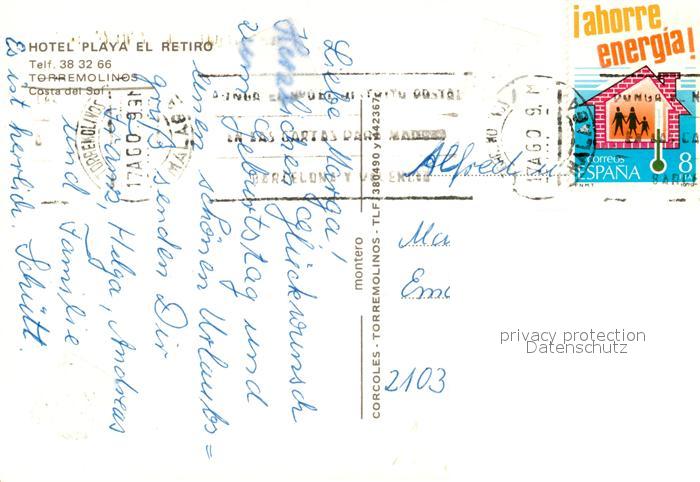 HOTEL PLAYA EL RETIRO
Telf. 38 32 66
TORREMOLINOS
Costa del Sol
Liebe Marga!
Herzl. Glückwunsch
zum Geburtstag und
einen schönen Urlaubs=
gruß senden Dir
Hans Helga, Andreas
und Familie
Schütt.
Es ist herrlich.
CORCOLES - TORREMOLINOS - TLF 380490 y 442367
montero
¡ahorre
energía!
correos
ESPAÑA
8
TORREMOLINOS
17 AGO 9 M
MALAGA
PONGA
EN LAS CARTAS PARA MADRID
BARCELONA Y VALENCIA
17 AGO 9 M
MALAGA
Alfred
Ma
Eme
2103
privacy protection
Datenschutz